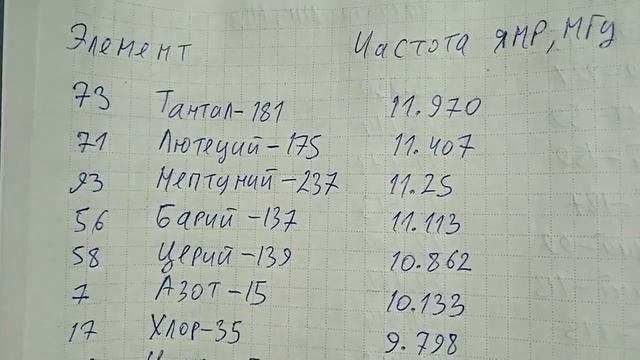 Элемент Частота ЯМР, МГц
73 Тантал-181 11.970
71 Лютеций-175 11.407
93 Нептуний-237 11.25
56 Барий-137 11.113
58 Церий-139 10.862
7 Азот-15 10.133
17 Хлор-35 9.798